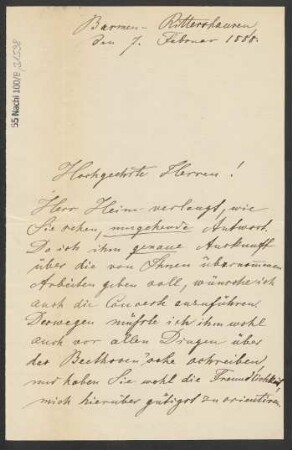 Barmen-Rittershausen,
den 7. Februar 1888.
Hochgeehrte Herren!
Herr Heim verlangt, wie
Sie sehen, umgehende Antwort.
Da ich ihm genaue Auskunft
über die von Ihnen übernommenen
Arbeiten geben soll, wünsche ich
auch die
Deswegen müsste ich ihm wohl
auch vor allen Dingen über
der Beethoven'sche schreiben,
und haben Sie wohl die Freundlichkeit,
mich hierüber gütigst zu orientiren
55 Nachl 100/B,